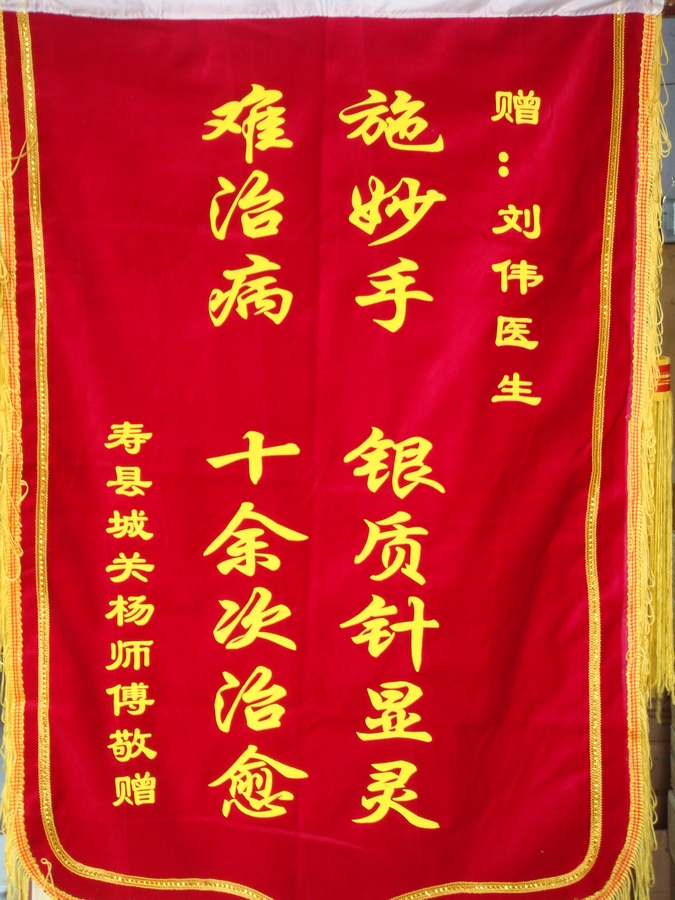 赠：刘伟医生
施妙手 银质针显灵
难治病 十余次治愈
寿县城关杨师傅敬赠